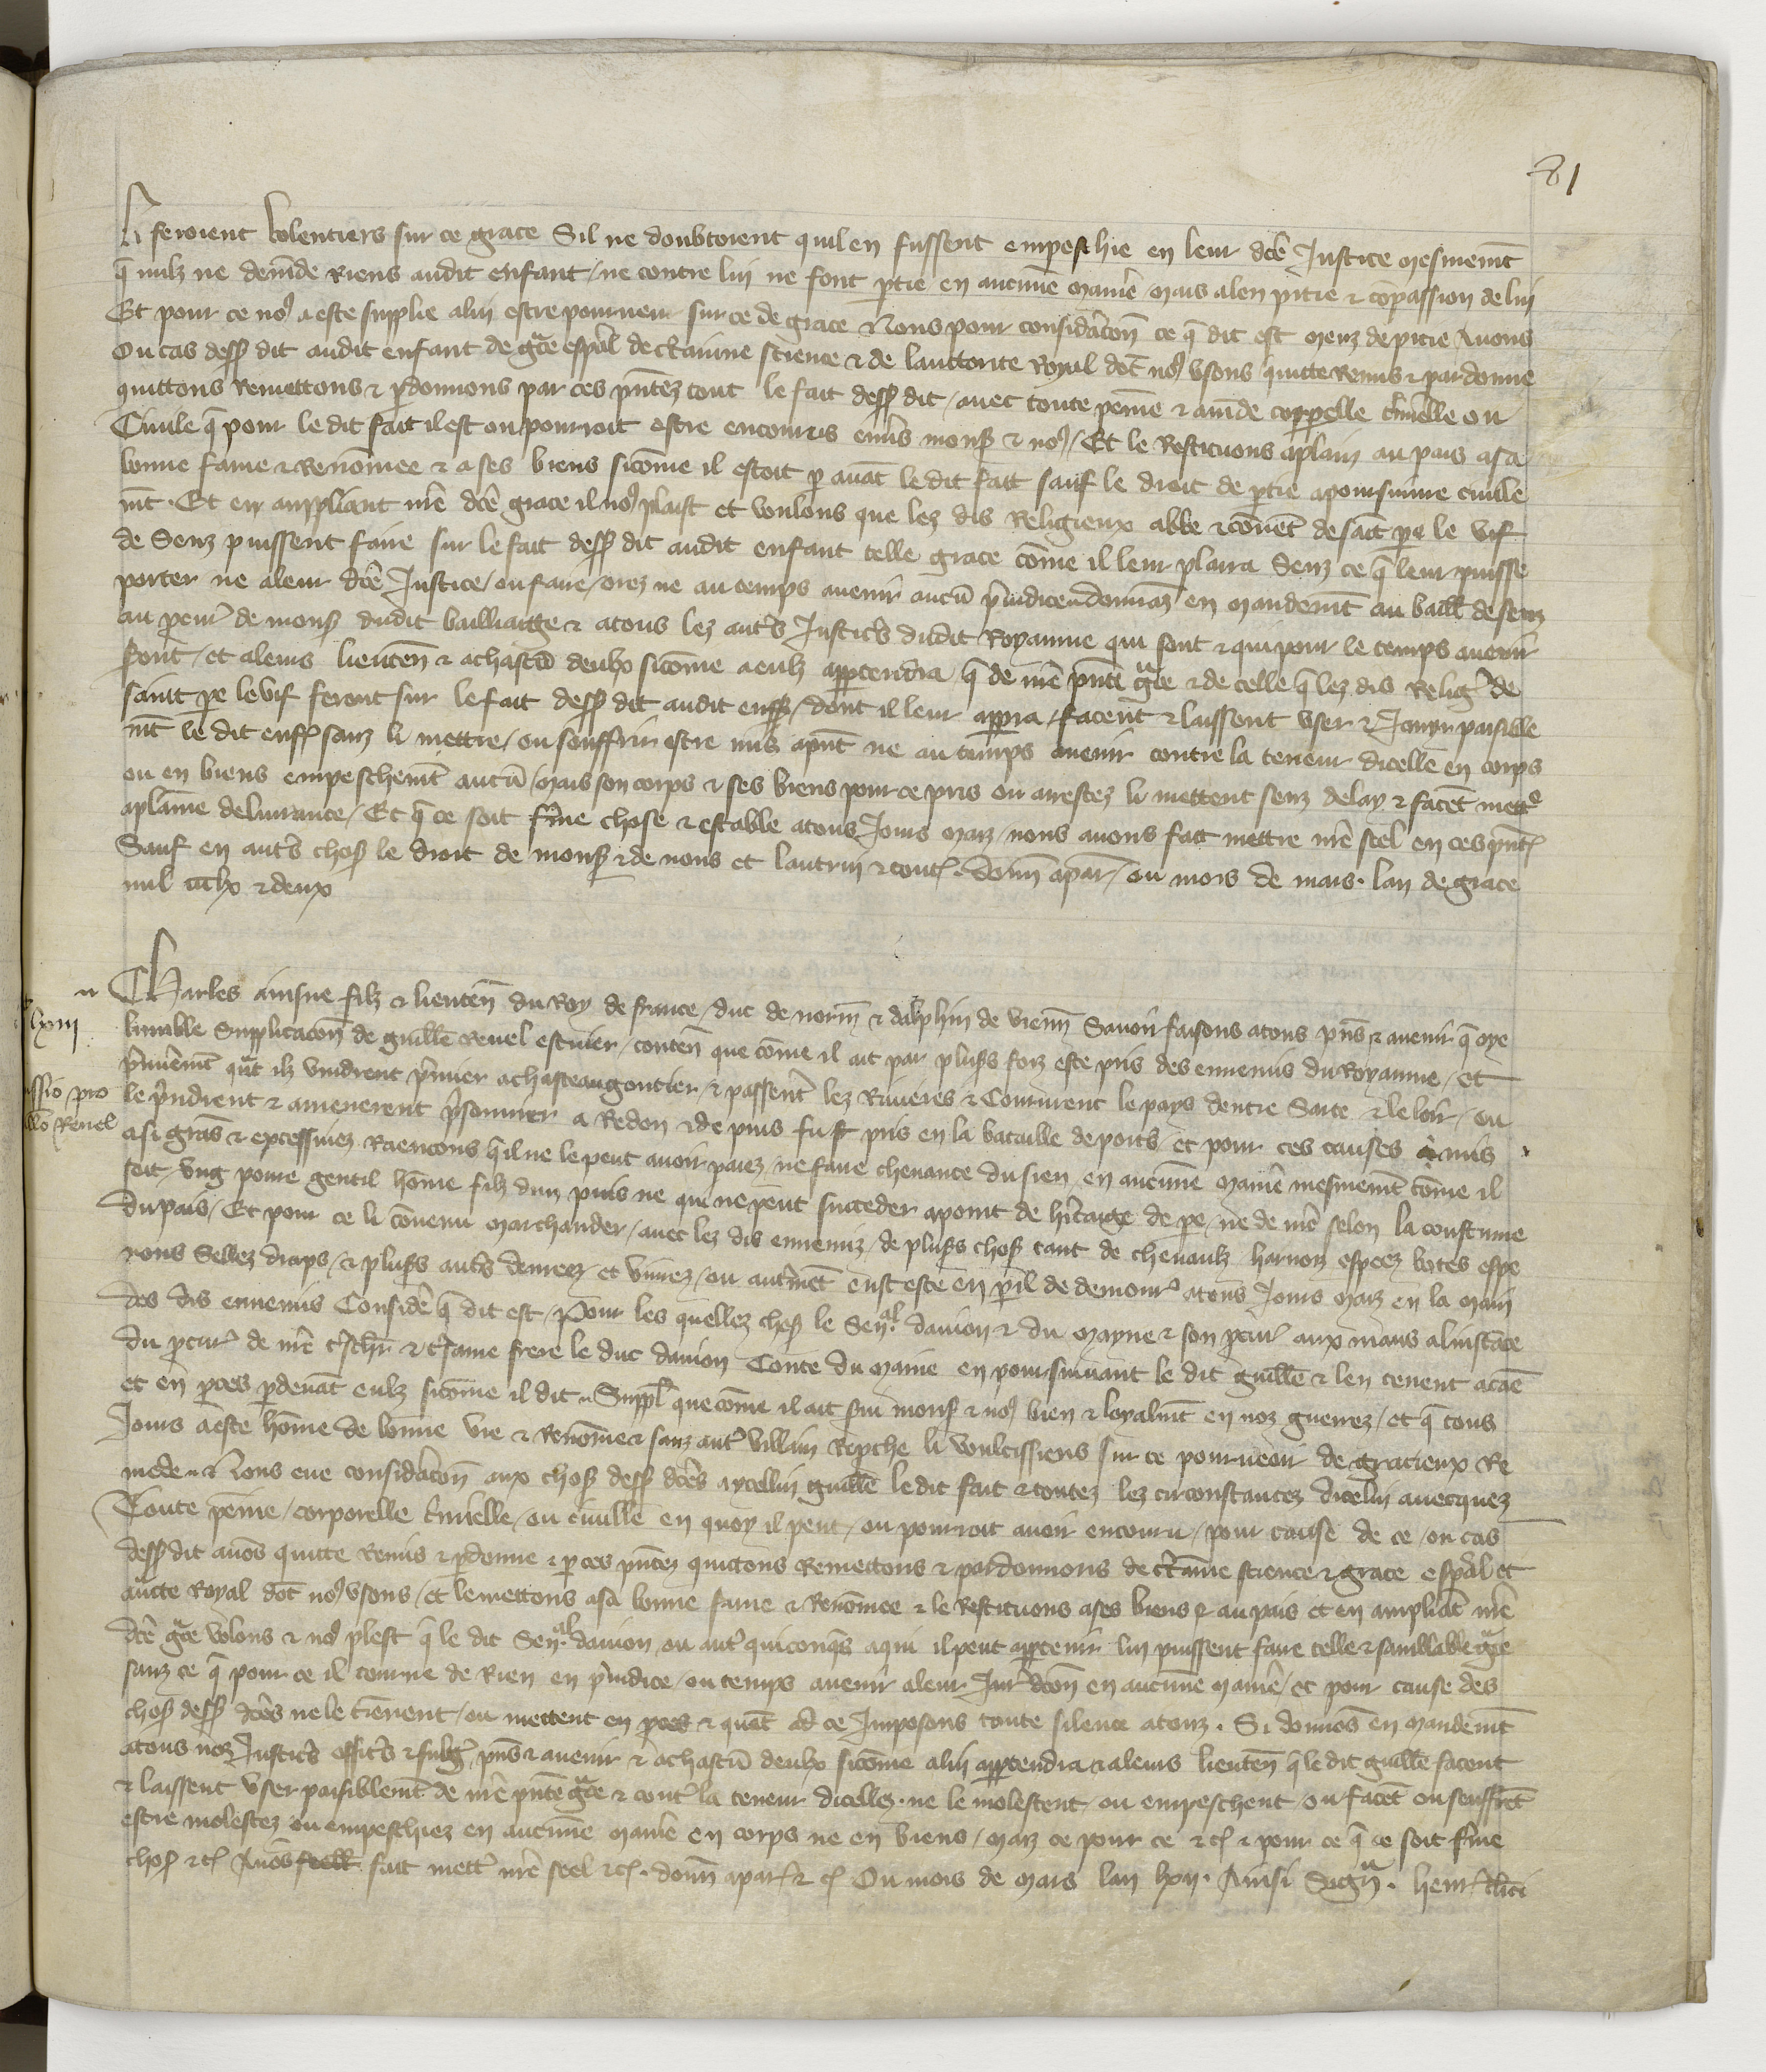 81
li feroient volentiers sur ce grace Sil ne doubtoient quil en fussent empeschie en leur dce Justice mesmemt
q nulz ne demde Riens audit enfant / ne contre lui ne font ptie en aucune manie mais a len pitie & compassion de lui
Et pour ce no9 a este supplie a lui estre pourveu sur ce de grace Nous pour consideracon ce q dit est meuz de pitie Avons
Ou cas dess9 dit audit enfant de gce espal de ctaine science & de lauctorite Royal dot no9 usons quitte Remis & pardonne
quittons Remettons & pdonnons par ces pntez tout le fait dess9 dit / avec toute peine & amde corpelle criminelle ou
Civile q pour le dit fait il est ou pourroit estre encouru envs mons9 & no9 / Et le Restituons a plain au pais a sa
bonne fame & Renommee & a ses biens sicome il estoit p avat le dit fait sauf le droit de ptie a poursuivre civille
mt. Et en ampliant nre dce grace il no9 plaist et voulons que lez dis Religieux abbe & covent de sait pe le vif
de Senz puissent faire sur le fait dess9 dit audit enfant telle grace come il leur plaira Senz ce q leur puisse
porter ne a leur dce Justice / ou faire / orez ne au temps avenir aucu pjudice donnas en mandemt au baill de senz
au peur de mons9 dudit bailliaige & a tous lez autrs Justicrs dudit Royaume qui sont & qui pour le temps avenir
sont / et a leurs lieuten & a chascu deulx sicome a eulz apptendra q de nre pnte gce & de celle q lez dis Relig9 de
saint pe le vif feront sur le fait dess9 dit audit enff9 / dont il leur apperra / facent & laissent user & Jouyr paisible
mt le dit enff9 sanz li mettre / ou souffrir estre mis a pnt ne au temps avenir contre la teneur dicelle en corps
ou en biens empeschemt aucu / mais son corps & ses biens pour ce pris ou arrestez li mettent senz delay & facet mettre
a plaine delivrance / Et q ce soit ferme chose & estable a tous Jours maiz / nous avons fait mettre nre scel en ces pnt9
Sauf en autrs chos9 le droit de mons9 & de nous et lautrui & tout9. donn a par9 / ou mois de mars. lan de grace
mil ccclx & deux
Charles ainsne filz & lieuten du Roy de france / duc de norm & dalphin de vienn Savoir faisons a tous pns & avenir q oye
lumble Supplicacon de guille Revel escuier / conten que come il ait par plus9s foiz este pris des ennemis du Royaume / et
pmiemt qut ilz vindrent pmier a chasteaugontier / & passent lez Rivieres & Coururent le pays dentre Sarte & le loir / ou
le pindrent & amenerent psonnier a Redon & de puis fu pris en la bataille de poits / et pour ces causes mis
a si gras & excessivez Raencons q il ne le peut avoir paiez / ne faire chevance du sien / en aucune manie mesmemt come il
soit / ung povre gentil home filz dun puis ne qui ne peut succeder a point de heritaige de pe / ne de me selon la coustume
du pais / Et pour ce li couvenu marchander / avec lez dis ennemiz / de plus9s chos9 tant de chevaulx harnoiz espeez botes espe
rons Sellez draps / & plus9s autrs denreez et vivrez / ou autmet eust este en peril de demourer a tous Jours maiz en la main
des dis ennemis Conside q dit est / Pour les quellez chos9 le Senal danjou & du mayne & son pcur aux mans a linstace
du pcur de nre tschr & tsame frere le duc danjou Conte du maine en poursuivant le dit guille & len tenent a cae
et en pces pdevat eulz sicome il dit Suppl que come il ait servi mons9 & no9 bien & loyalmt en noz guerrez / et q tous
Jours a este home de bonne vie & Renomee & sanz autre villain Repche li voulcissiens sur ce pourveoir de gracieux Re
mede & Nous eue consideracon aux chos9 dess9 dces a ycellui guille le dit fait & toutez lez circonstancez dicelui avecquez
Toute peine / corporelle criminelle / ou civille en quoy il peut / ou pourroit avoir encouru / pour cause de ce / ou cas
dess9 dit avos quitte Remis & pdonne & p ces pntez quittons Remettons & pardonnons de ctaine science & grace espal et
aucte Royal dot no9 usons / et le mettons a sa bonne fame & Renommee & le Restituons a ses biens & au pais et en ampliat nre
dce gce volons & no9 plest q le dit Senal danjou / ou autre quiconqs a qui il peut apptenir lui puissent faire telle & samblable gce
sanz ce q pour ce il tourne de Rien en pjudice / ou temps avenir a leur Jurdcon en aucune manie / et pour cause des
chos9 dess9 dces ne le tienent / ou mettent en pces & quat ad ce Imposons toute silence a touz. Si donnos en mandemt
a tous noz Justicrs officrs & subg9 pns & avenir & a chascu deulx sicome a lui apptendra & a leurs lieuten q le dit guille facent
& laissent user paisiblemt de nre pnte gce & contre la teneur dicellez. ne le molestent / ou empeschent / ou facet ou seuffret
estre molestez ou empeschiez en aucune manie en corps ne en biens / maiz ce pour ce &c9 & pour ce q ce soit ferme
chos9 &c9 Avos fait mettre nre scel &c9. donn a par9 & c9 Ou mois de mars lan lxii. Ainsi Sign. henr clici
lxiii
ssio pro
llo Revel